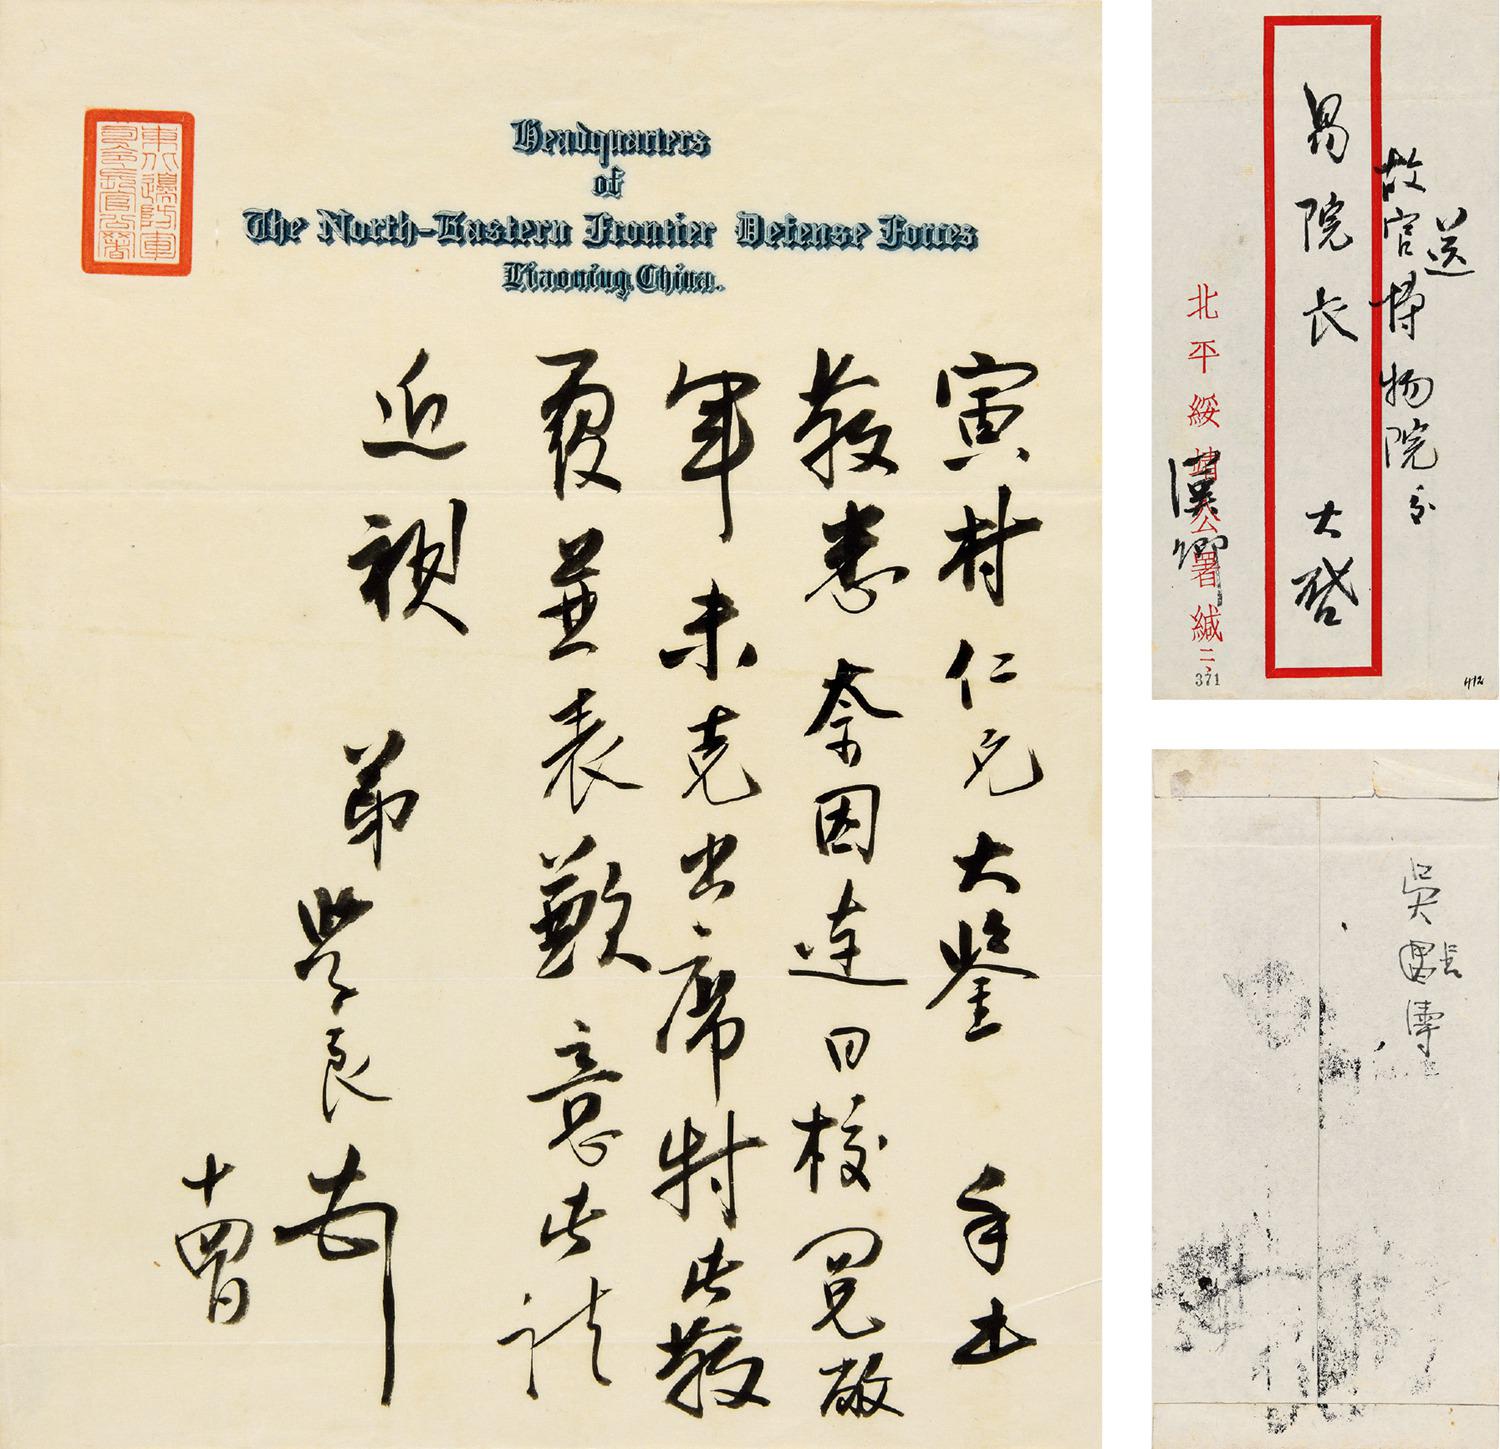 東北邊防軍
司令長官公署
Headquarters
of
The North-Eastern Frontier Defense Forces
Liaoning, China.
寅村仁兄大鑒 手書
敬悉奈因連日校閱敝
軍未克出席特此敬
覆並表歉意此請
近祺 弟學良
十四日
送
故宮博物院交
易院長 大啓
北平綏靖公署緘
漢卿
371
吳